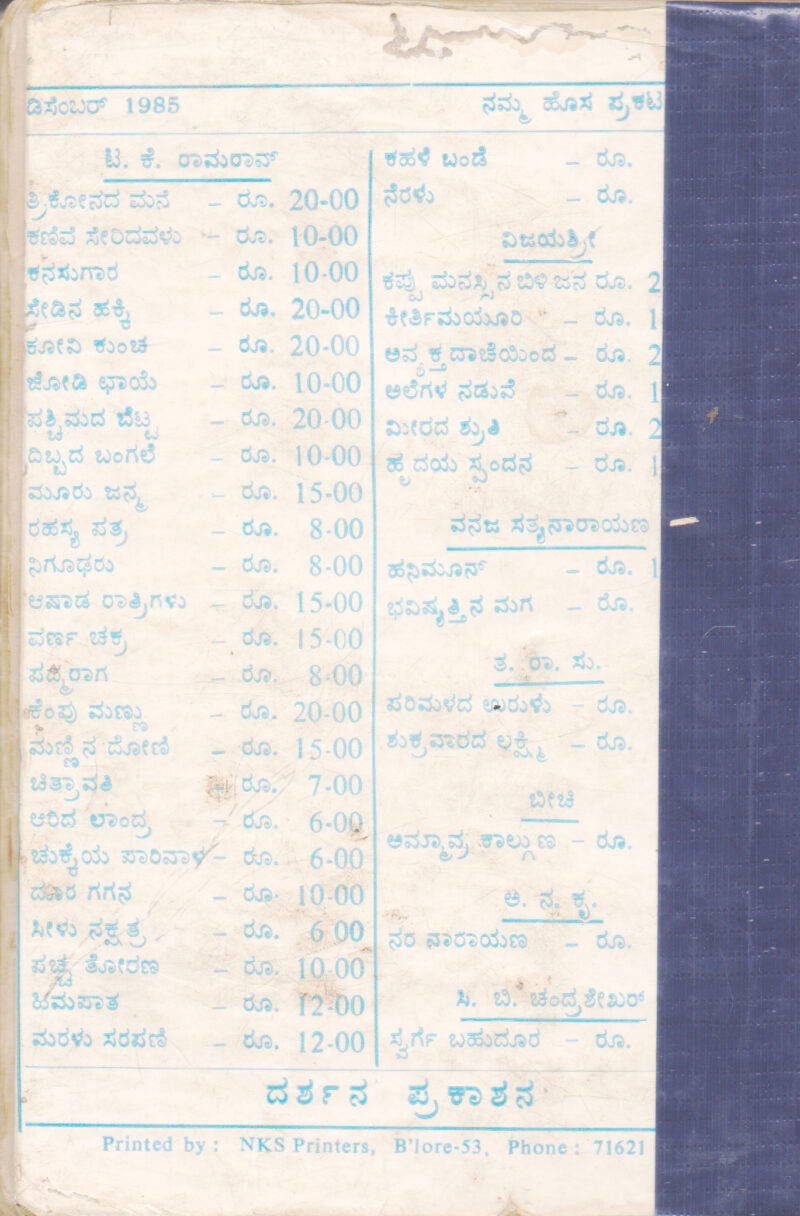 ಡಿಸೆಂಬರ್ 1985
ನಮ್ಮ ಹೊಸ ಪ್ರಕಟ
ಟಿ. ಕೆ. ರಾಮರಾವ್
ತ್ರಿಕೋನದ ಮನೆ – ರೂ. 20-00
ಕಣಿವೆ ಸೇರಿದವಳು – ರೂ. 10-00
ಕನಸುಗಾರ – ರೂ. 10-00
ಸೇಡಿನ ಹಕ್ಕಿ – ರೂ. 20-00
ಕೋವಿ ಕುಂಚ – ರೂ. 20-00
ಜೋಡಿ ಛಾಯೆ – ರೂ. 10-00
ಪಶ್ಚಿಮದ ಬೆಟ್ಟ – ರೂ. 20-00
ದಿಬ್ಬದ ಬಂಗಲೆ – ರೂ. 10-00
ಮೂರು ಜನ್ಮ – ರೂ. 15-00
ರಹಸ್ಯ ಪತ್ರ – ರೂ. 8-00
ನಿಗೂಢರು – ರೂ. 8-00
ಆಷಾಡ ರಾತ್ರಿಗಳು – ರೂ. 15-00
ವರ್ಣ ಚಕ್ರ – ರೂ. 15-00
ಪದ್ಮರಾಗ – ರೂ. 8-00
ಕೆಂಪು ಮಣ್ಣು – ರೂ. 20-00
ಮಣ್ಣಿನ ದೋಣಿ – ರೂ. 15-00
ಚಿತ್ರಾವತಿ – ರೂ. 7-00
ಆರಿದ ಲಾಂದ್ರ – ರೂ. 6-00
ಚುಕ್ಕೆಯ ಪಾರಿವಾಳ – ರೂ. 6-00
ದೂರ ಗಗನ – ರೂ. 10-00
ಸೀಳು ನಕ್ಷತ್ರ – ರೂ. 6 00
ಪಚ್ಚ ತೋರಣ – ರೂ. 10-00
ಹಿಮಪಾತ – ರೂ. 12-00
ಮರಳು ಸರಪಣಿ – ರೂ. 12-00
ಕಹಳೆ ಬಂಡೆ – ರೂ.
ನೆರಳು – ರೂ.
ವಿಜಯಶ್ರೀ
ಕಪ್ಪು ಮನಸ್ಸಿನ ಬಿಳಿ ಜನ ರೂ. 2
ಕೀರ್ತಿಮಯೂರಿ – ರೂ. 1
ಅವ್ಯಕ್ತದಾಚೆಯಿಂದ – ರೂ. 2
ಅಲೆಗಳ ನಡುವೆ – ರೂ. 1
ಮೀರದ ಶ್ರುತಿ – ರೂ. 2
ಹೃದಯ ಸ್ಪಂದನ – ರೂ. 1
ವನಜ ಸತ್ಯನಾರಾಯಣ
ಹನಿಮೂನ್ – ರೂ. 1
ಭವಿಷ್ಯತ್ತಿನ ಮಗ – ರೊ.
ತ. ರಾ. ಸು.
ಪರಿಮಳದ ಉರುಳು – ರೂ.
ಶುಕ್ರವಾರದ ಲಕ್ಷ್ಮಿ – ರೂ.
ಬೀಚಿ
ಅಮ್ಮಾವ್ರ ಕಾಲ್ಗುಣ – ರೂ.
ಅ. ನ. ಕೃ.
ನರ ನಾರಾಯಣ – ರೂ.
ಸಿ. ಬಿ. ಚಂದ್ರಶೇಖರ್
ಸ್ವರ್ಗ ಬಹುದೂರ – ರೂ.
ದರ್ಶನ ಪ್ರಕಾಶನ
Printed by : NKS Printers, B'lore-53, Phone : 71621